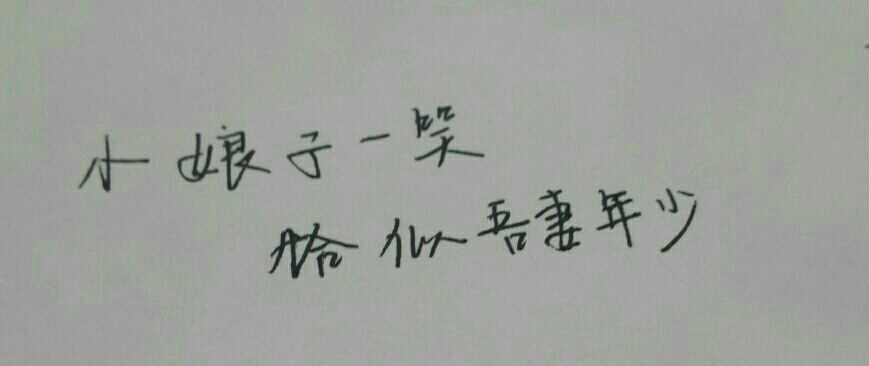 小娘子一哭
恰似吾妻年少